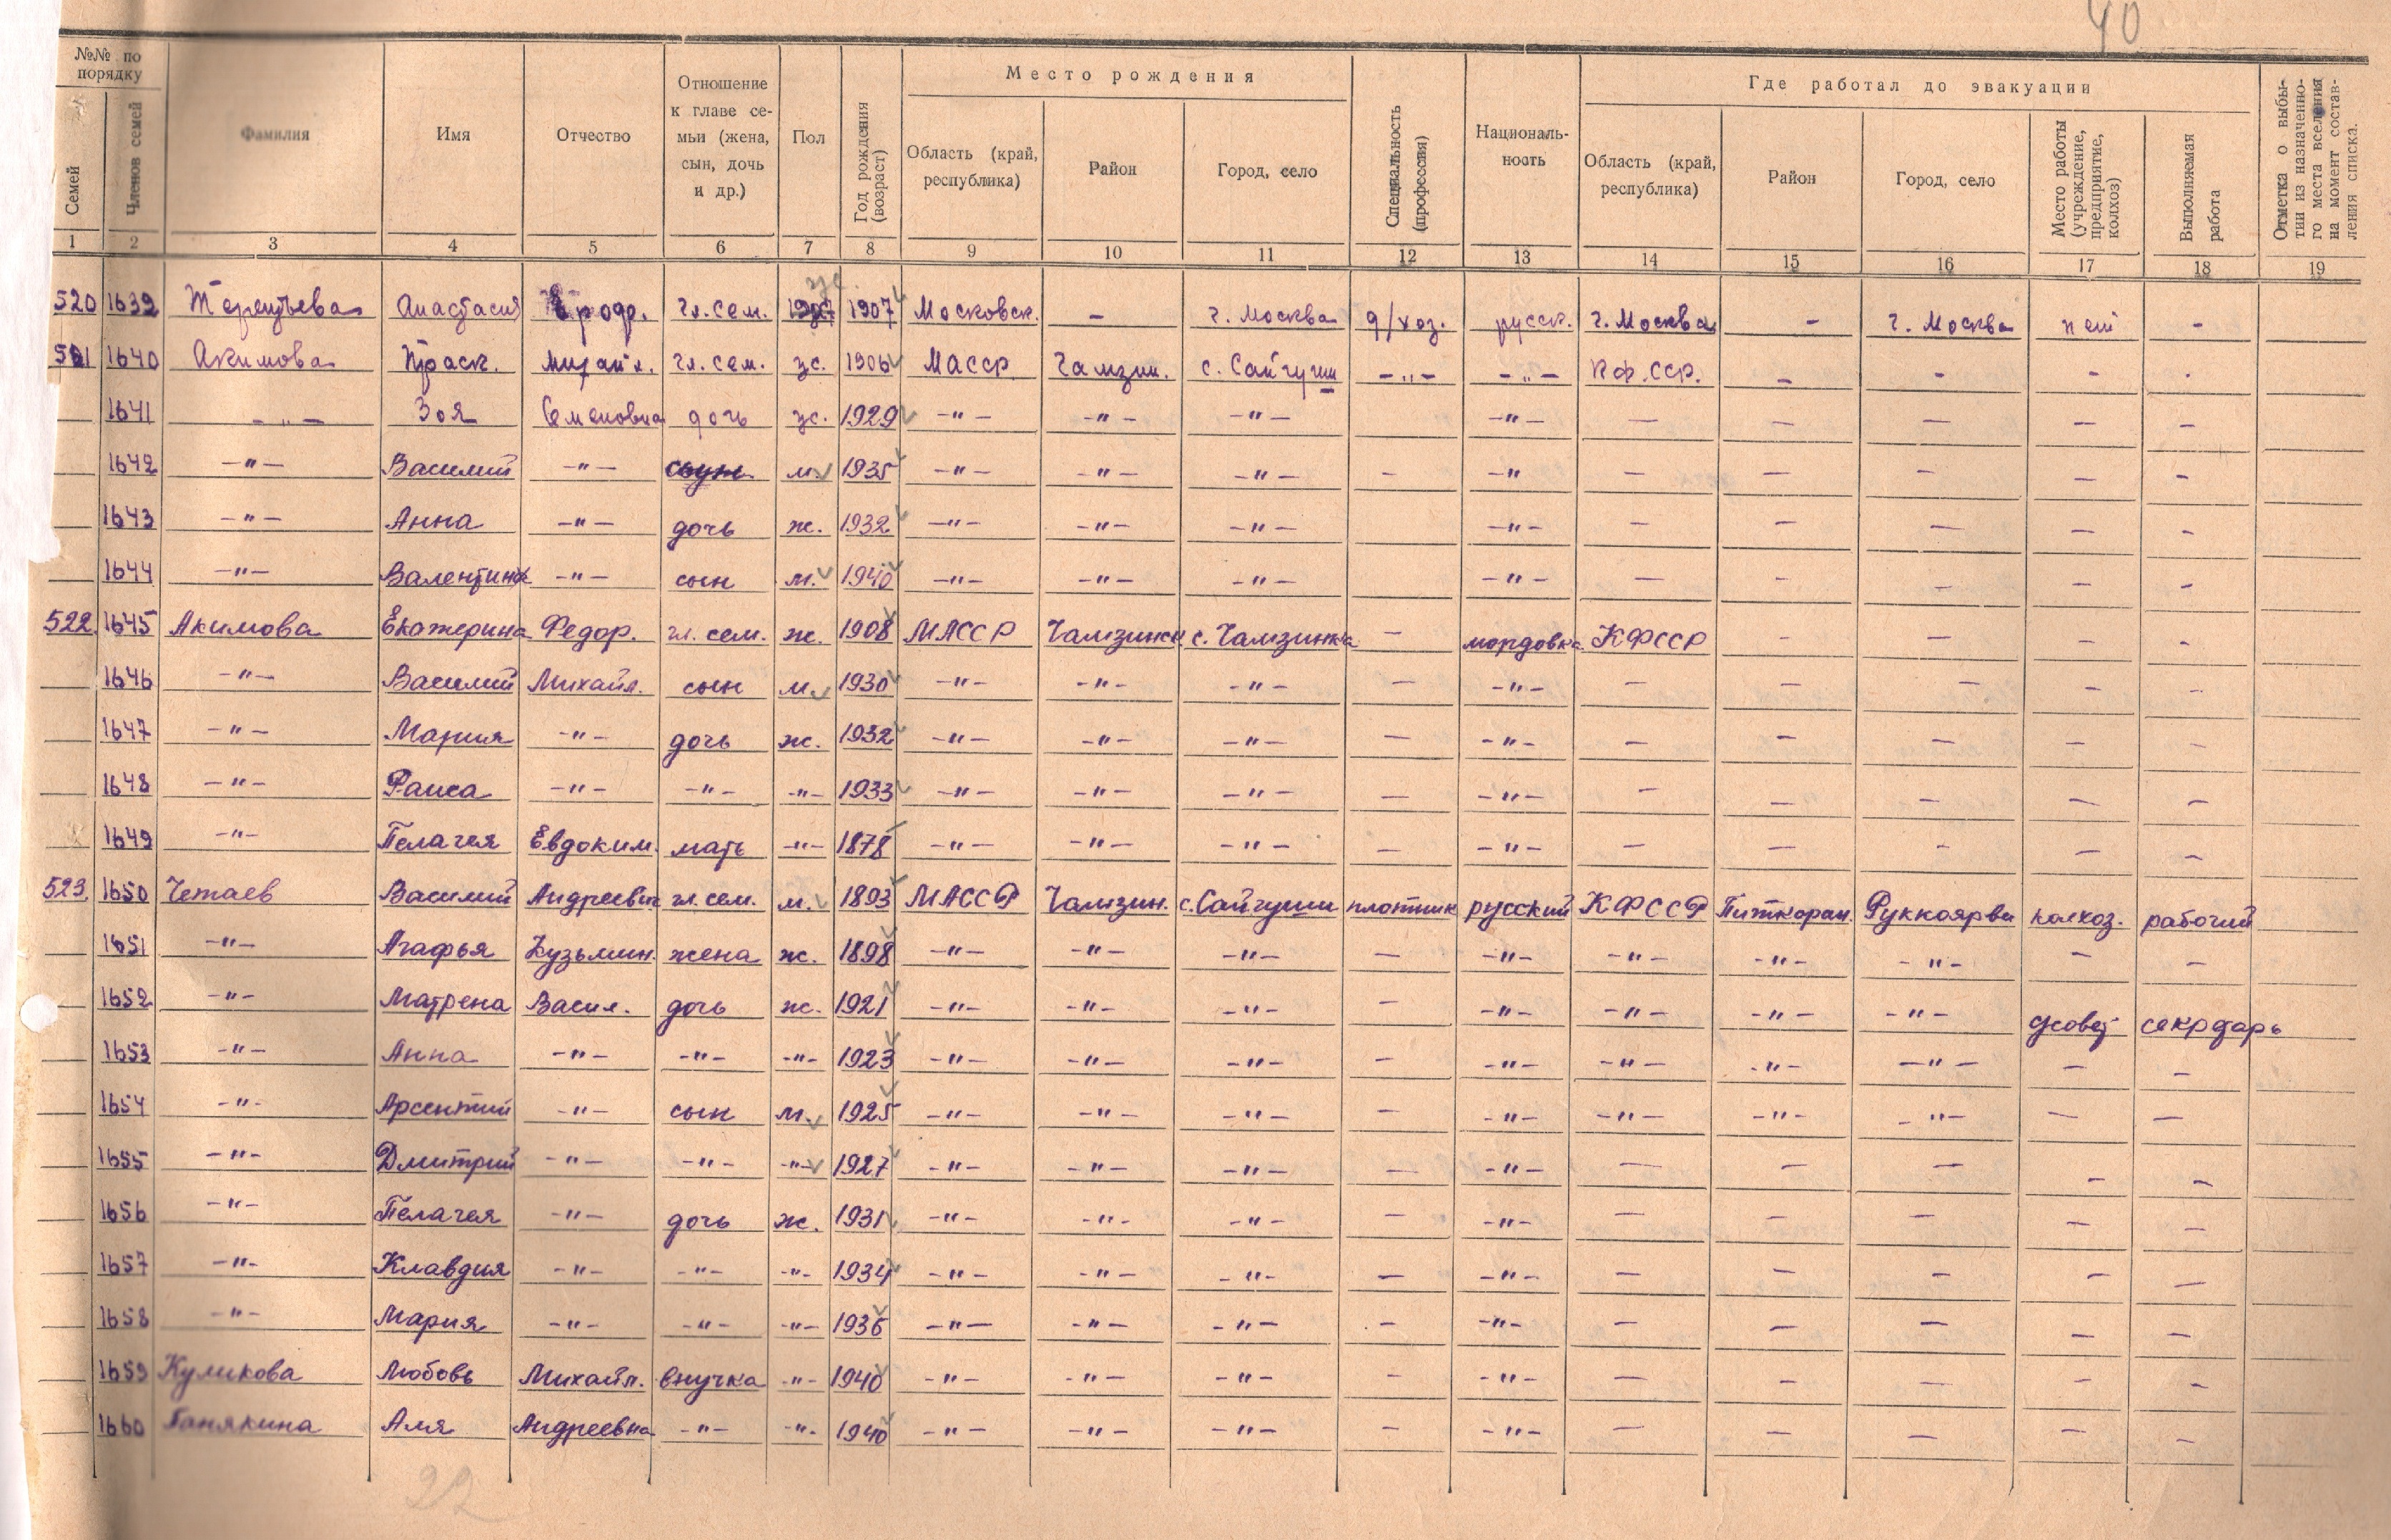 40
№№ по порядку | Фамилия | Имя | Отчество | Отношение к главе семьи (жена, сын, дочь и др.) | Пол | Год рождения (возраст) | Место рождения | Специальность (профессия) | Националь-ность | Где работал до эвакуации | Отметка о выбы-тии из назначенно-го места вселения на момент состав-ления списка.
Семей | Членов семей | Область (край, республика) | Район | Город, село | Область (край, республика) | Район | Город, село | Место работы (учреждение, предприятие, колхоз) | Выполняемая работа
1 | 2 | 3 | 4 | 5 | 6 | 7 | 8 | 9 | 10 | 11 | 12 | 13 | 14 | 15 | 16 | 17 | 18 | 19
520 | 1639 | Терентьева | Анастасия | гл. сем. | ж. | 1907 | Московск. | - | г. Москва | д/хоз. | русск. | г. Москва | - | г. Москва | -
521 | 1640 | Акимова | Праск. | Михайл. | гл. сем. | ж. | 1906 | МАССР | Чамзин. | с. Сайгуши | -"- | -"- | КФ.ССР. | - | - | - | -
1641 | -"- | Зоя | Семеновна | дочь | ж. | 1929 | -"- | -"- | -"- | -"- | - | - | - | - | -
1642 | -"- | Василий | -"- | сын | м. | 1935 | -"- | -"- | -"- | - | -" | - | - | - | - | -
1643 | -"- | Анна | -"- | дочь | ж. | 1932 | -"- | -"- | -"- | -"- | - | - | - | - | -
1644 | -"- | Валентин | -"- | сын | м. | 1940 | -"- | -"- | -"- | -"- | - | - | - | - | -
522. | 1645 | Акимова | Екатерина | Федор. | гл. сем. | ж. | 1908 | МАССР | Чамзинск. | с. Чамзинка | - | мордовка | КФССР | - | - | - | -
1646 | -"- | Василий | Михайл. | сын | м. | 1930 | -"- | -"- | -"- | - | -"- | - | - | - | - | -
1647 | -"- | Мария | -"- | дочь | ж. | 1932 | -"- | -"- | -"- | - | -"- | - | - | - | - | -
1648 | -"- | Раиса | -"- | -"- | -"- | 1933 | -"- | -"- | -"- | - | -"- | - | - | - | - | -
1649 | -"- | Пелагея | Евдоким. | мать | -"- | 1878 | -"- | -"- | -"- | - | -"- | - | - | - | - | -
523. | 1650 | Четаев | Василий | Андреевич | гл. сем. | м. | 1893 | МАССР | Чамзин. | с. Сайгуши | плотник | русский | КФССР | Питкоран. | Руккоярви | колхоз. | рабочий
1651 | -"- | Агафья | Кузьмин. | жена | ж. | 1898 | -"- | -"- | -"- | - | -"- | -"- | -"- | -"- | - | -
1652 | -"- | Матрена | Васил. | дочь | ж. | 1921 | -"- | -"- | -"- | - | -"- | -"- | -"- | -"- | секрдарь
1653 | -"- | Анна | -"- | -"- | -"- | 1923 | -"- | -"- | -"- | - | -"- | -"- | -"- | -"- | - | -
1654 | -"- | Арсентий | -"- | сын | м. | 1925 | -"- | -"- | -"- | - | -"- | -"- | -"- | -"- | - | -
1655 | -"- | Дмитрий | -"- | -"- | -"- | 1927 | -"- | -"- | -"- | - | -"- | - | - | - | - | -
1656 | -"- | Пелагея | -"- | дочь | ж. | 1931 | -"- | -"- | -"- | - | -"- | - | - | - | - | -
1657 | -"- | Клавдия | -"- | -"- | -"- | 1934 | -"- | -"- | -"- | - | -"- | - | - | - | - | -
1658 | -"- | Мария | -"- | -"- | -"- | 1936 | -"- | -"- | -"- | - | -"- | - | - | - | - | -
1659 | Куликова | Любовь | Михайл. | внучка | -"- | 1940 | -"- | -"- | -"- | - | -"- | - | - | - | - | -
1660 | Панякина | Аля | Андреевна | -"- | -"- | 1940 | -"- | -"- | -"- | - | -"- | - | - | - | - | -
22